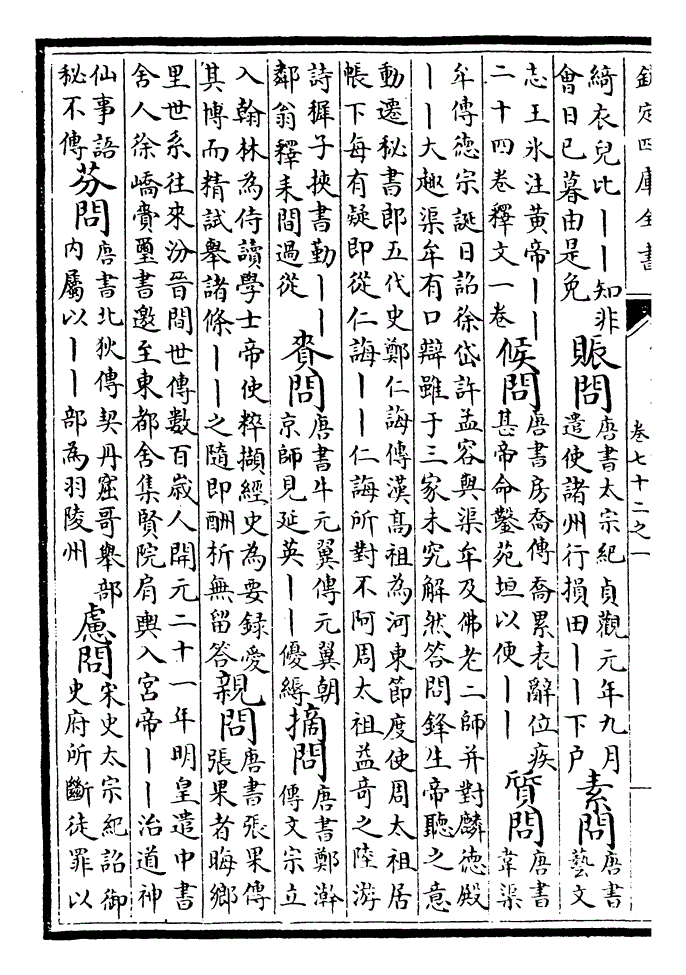 欽定四庫全書
卷七十二之一
綺衣兒比｜｜知非
會日已暮由是免
賑問
唐書太宗紀貞觀元年九月
遣使諸州行損田｜｜下戶
素問
唐書
藝文
志王氷注黄帝｜｜
二十四卷釋文一卷
候問
唐書房喬傳喬累表辭位疾
甚帝命鑿苑垣以便｜｜
質問
唐書
韋渠
牟傳德宗誕日詔徐岱許孟容與渠牟及佛老二師并對麟德殿
｜｜大趣渠牟有口辯雖于三家未究解然答問鋒生帝聽之意
動遷秘書郎五代史鄭仁誨傳漢髙祖為河東節度使周太祖居
帳下每有疑即從仁誨｜｜仁誨所對不阿周太祖益奇之陸游
詩穉子挾書勤｜｜
鄰翁釋耒間過從
賚問
唐書牛元翼傳元翼朝
京師見延英｜｜優縟
摘問
唐書鄭澣
傳文宗立
入翰林為侍讀學士帝使粹擷經史為要録愛
其博而精試舉諸條｜｜之隨即酬析無留答
親問
唐書張果傳
張果者晦鄉
里世系往來汾晉間世傳數百歳人開元二十一年明皇遣中書
舍人徐嶠賫璽書邀至東都舍集賢院肩輿入宮帝｜｜治道神
仙事語
秘不傳
芬問
唐書北狄傳契丹窟哥舉部
内屬以｜｜部為羽陵州
慮問
宋史太宗紀詔御
史府所斷徒罪以